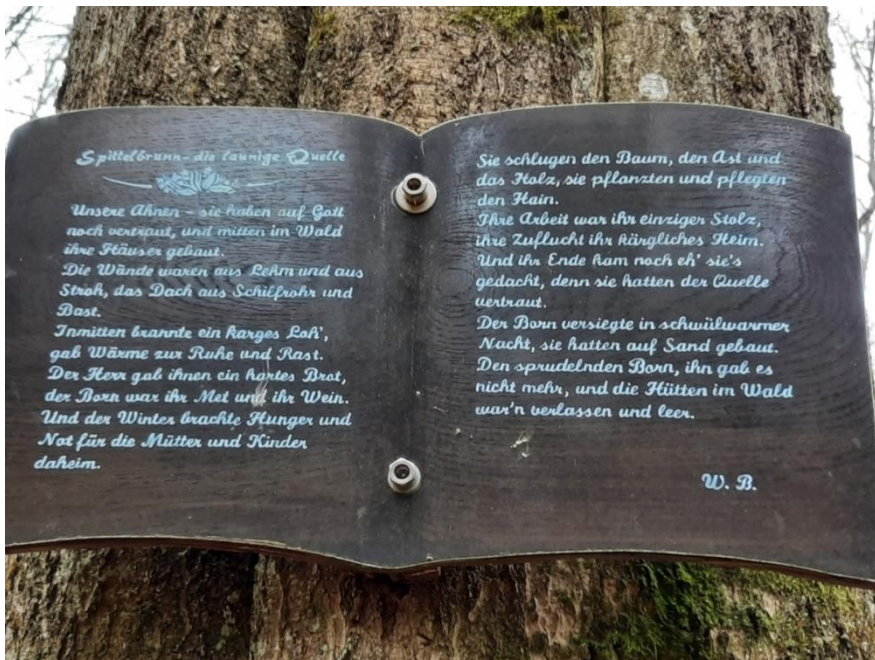 Spittelbrunn - die launige Quelle
Unsere Ahnen - sie haben auf Gott
noch vertraut, und mitten im Wald
ihre Häuser gebaut.
Die Wände waren aus Lehm und aus
Stroh, das Dach aus Schilfrohr und
Bast.
Inmitten brannte ein karges Loh',
gab Wärme zur Ruhe und Rast.
Der Herr gab ihnen ein hartes Brot,
der Born war ihr Met und ihr Wein.
Und der Winter brachte Hunger und
Not für die Mütter und Kinder
daheim.
Sie schlugen den Baum, den Ast und
das Holz, sie pflanzten und pflegten
den Hain.
Ihre Arbeit war ihr einziger Stolz,
ihre Zuflucht ihr kärgliches Heim.
Und ihr Ende kam noch eh' sie's
gedacht, denn sie hatten der Quelle
vertraut.
Der Born versiegte in schwülwarmer
Nacht, sie hatten auf Sand gebaut.
Den sprudelnden Born, ihn gab es
nicht mehr, und die Hütten im Wald
war'n verlassen und leer.
W. B.